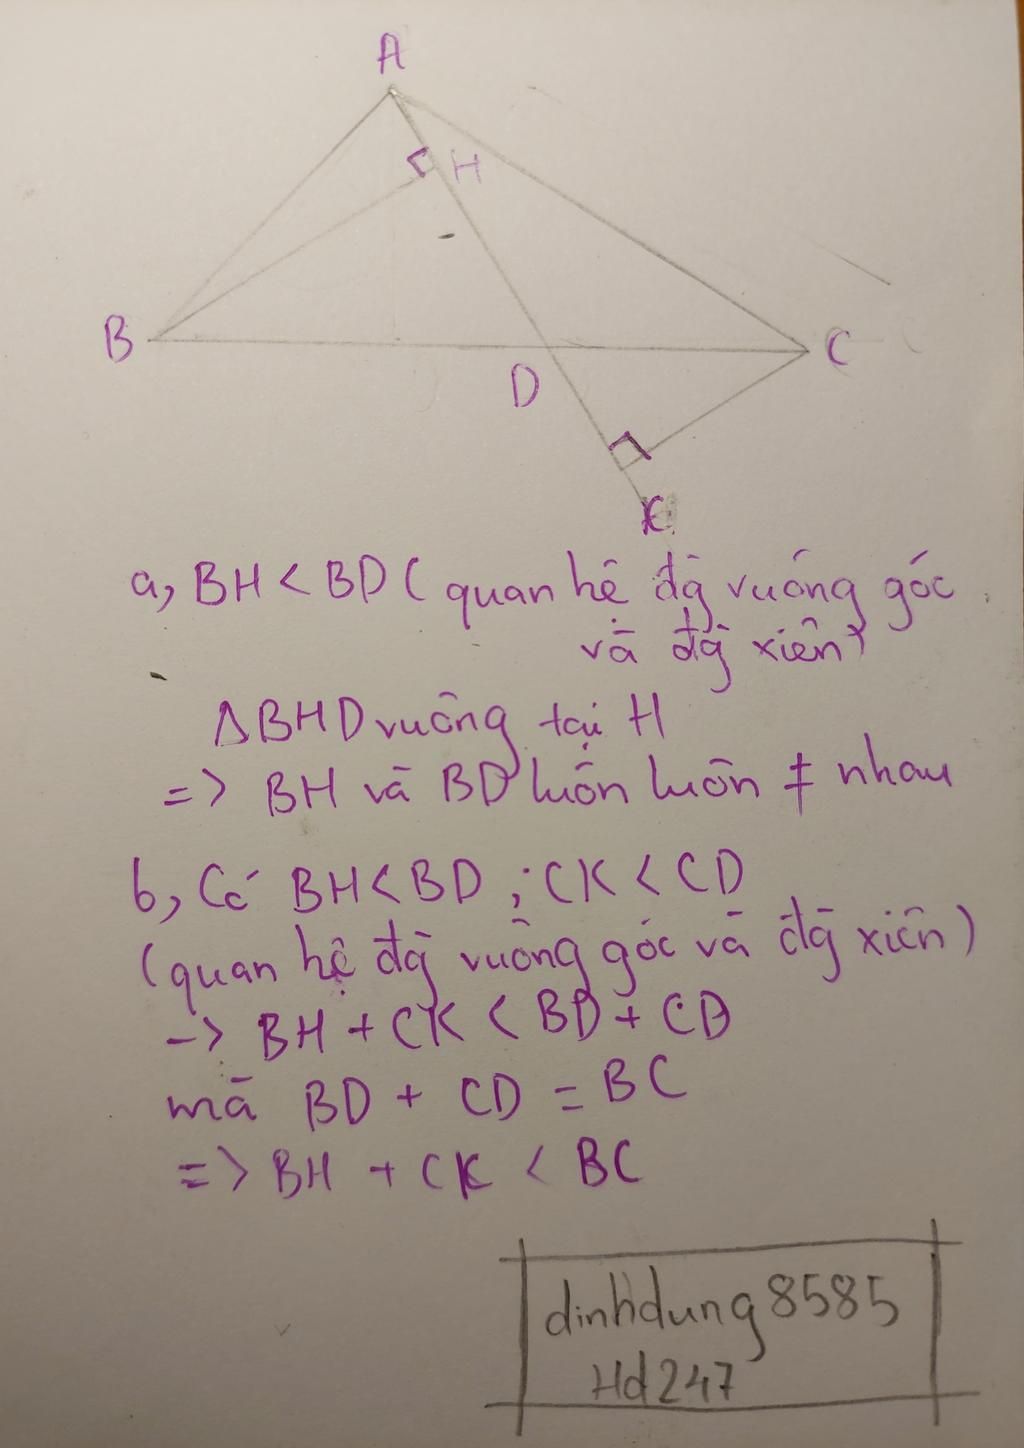 A
H
B
C
D
K
a, BH < BD ( quan hệ đg vuông góc
và đg xiên)
ΔBHD vuông tại H
=> BH và BD luôn luôn ≠ nhau
b, Có BH < BD ; CK < CD
(quan hệ đg vuông góc và đg xiên)
-> BH + CK < BD + CD
mà BD + CD = BC
=> BH + CK < BC
dinhdung8585
Hd247